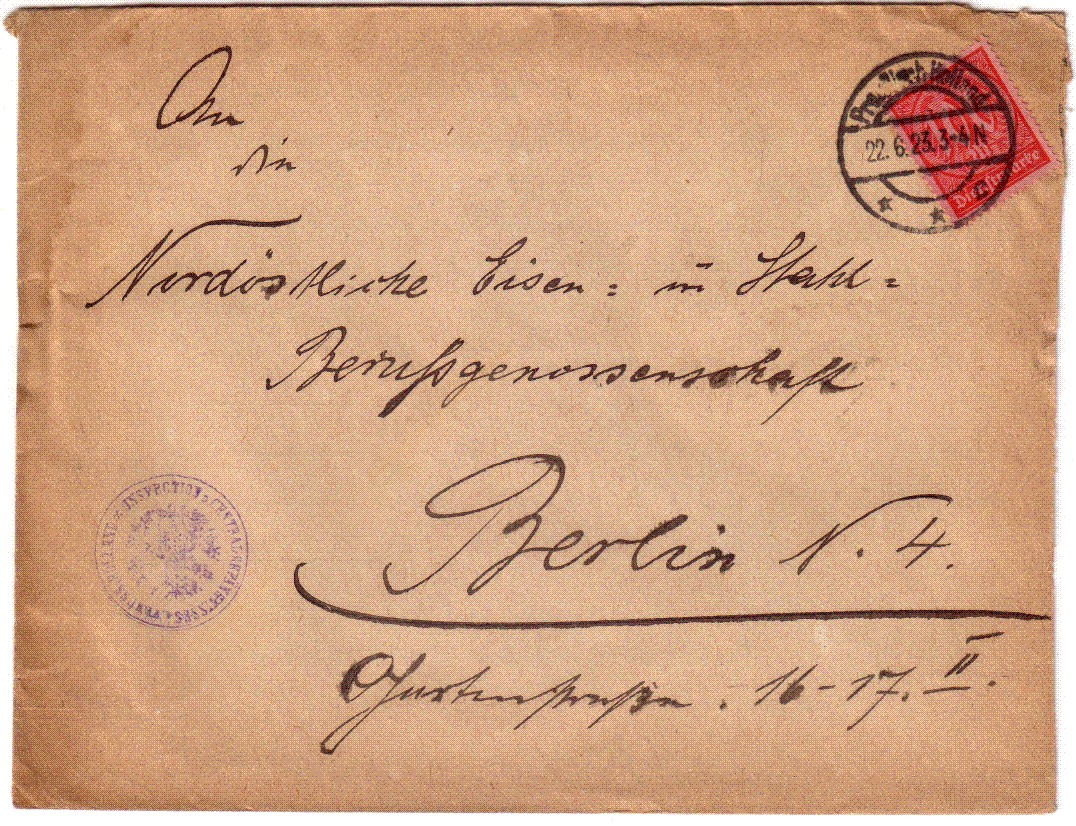 An
die
Nordöstliche Eisen= u. Stahl=
Berufsgenossenschaft
Berlin N. 4.
Gartenstraße. 16-17. II.
Pr. Holland
22.6.23.3-4N
100
Dienstmarke
INSPECTION